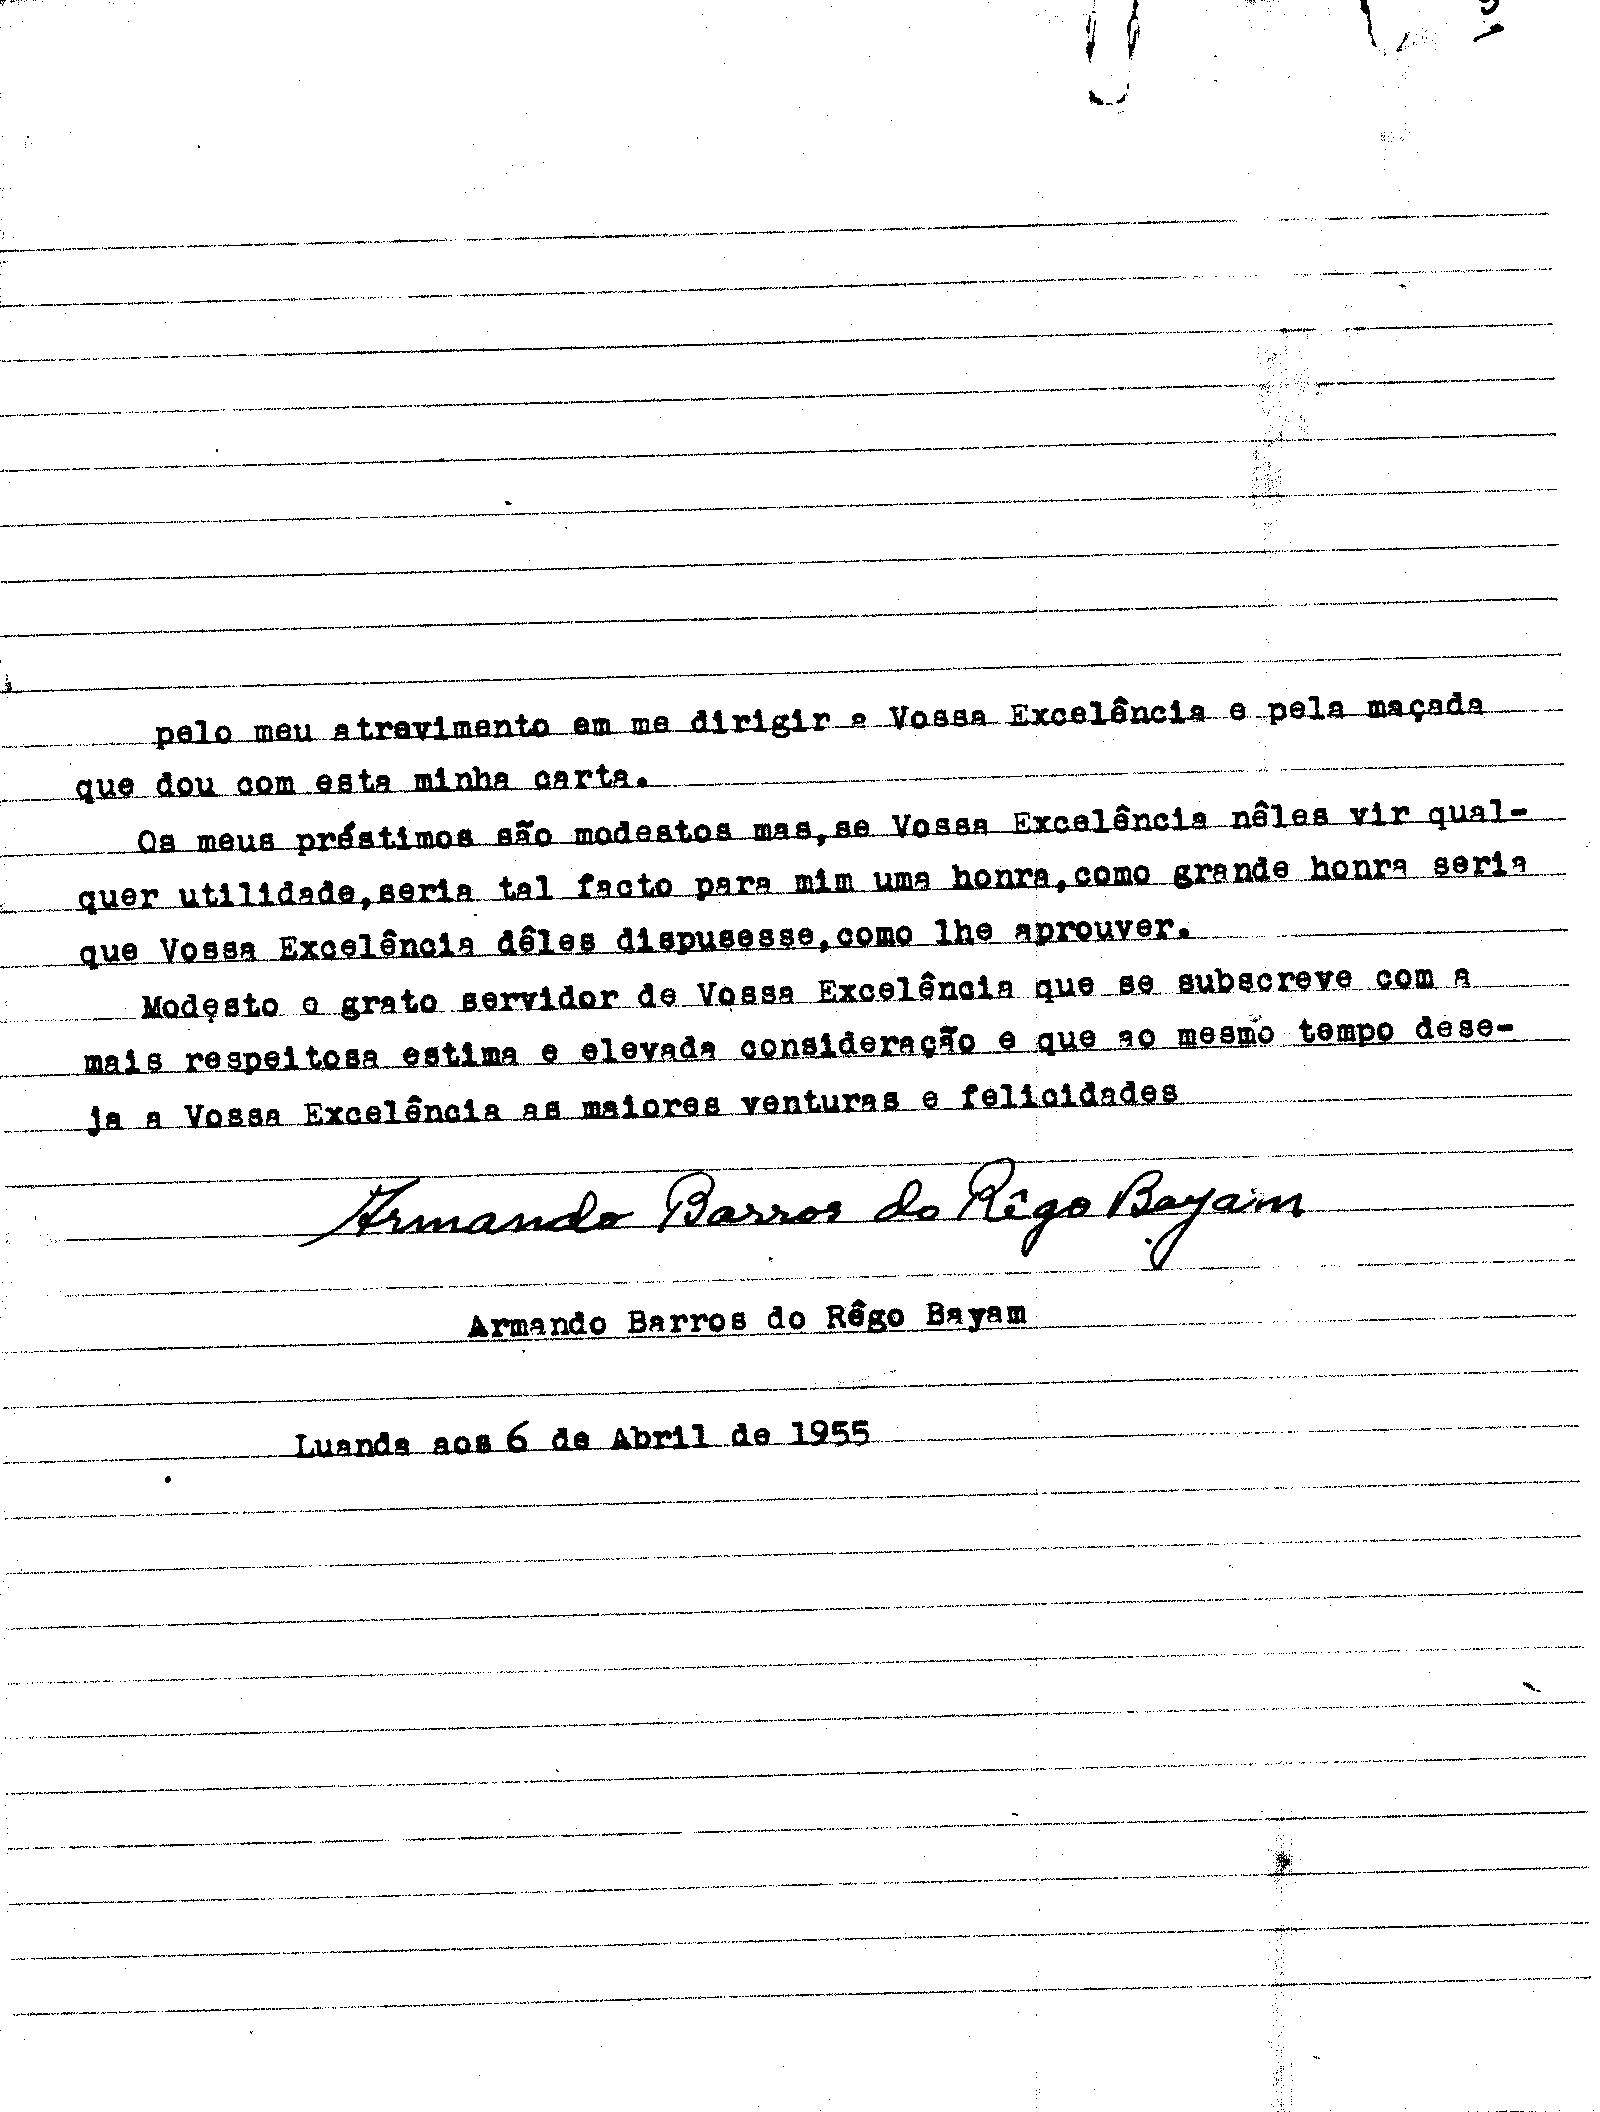 pelo meu atrevimento em me dirigir a Vossa Excelência e pela maçada
que dou com esta minha carta.
Os meus préstimos são modestos mas,se Vossa Excelência nêles vir qual-
quer utilidade,seria tal facto para mim uma honra,como grande honra seria
que Vossa Excelência dêles dispusesse,como lhe aprouver.
Modesto e grato servidor de Vossa Excelência que se subscreve com a
mais respeitosa estima e elevada consideração e que ao mesmo tempo dese-
ja a Vossa Excelência as maiores venturas e felicidades
Armando Barros do Rêgo Bayam
Armando Barros do Rêgo Bayam
Luanda aos 6 de Abril de 1955